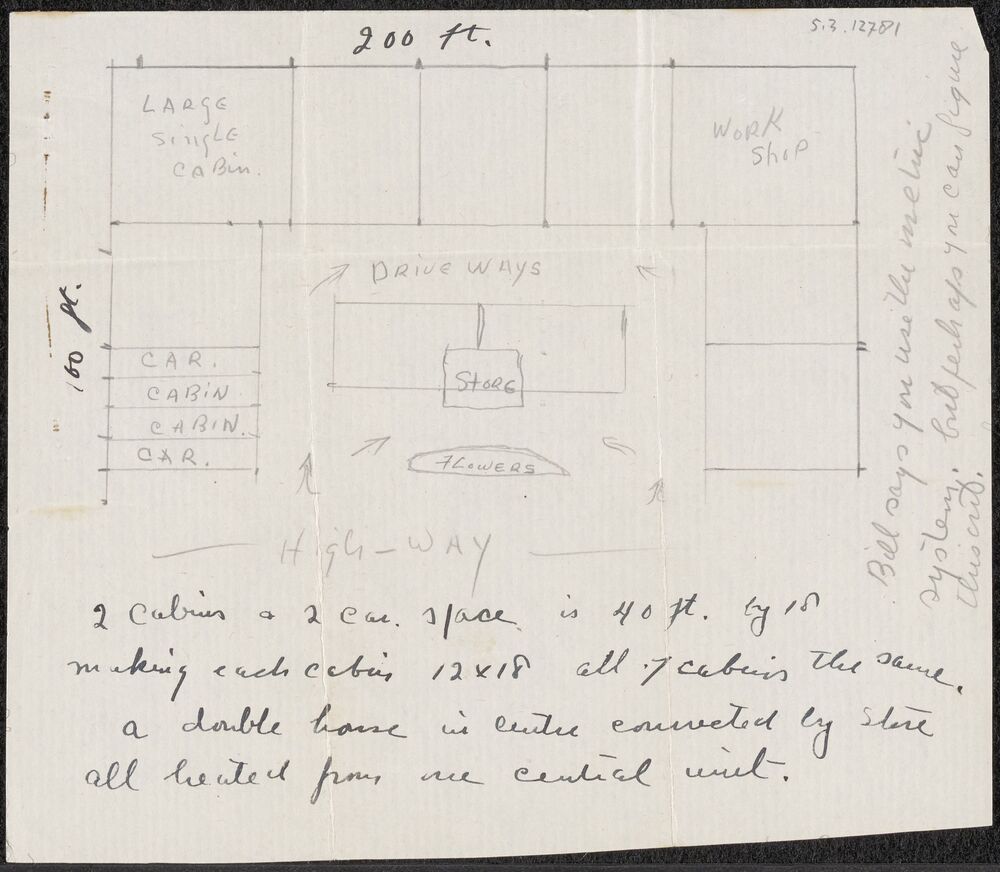 S.3.12781
200 ft.
LARGE
SinglE
CABin.
WORK
ShoP
100 ft.
DRIVE WAYS
STORE
CAR.
CABiN
CABIN.
CAR.
FLOWERS
HigH-WAY
2 cabins & 2 car. space is 40 ft. by 18
making each cabin 12x18 all 7 cabins the same.
a double house in centre connected by store
all heated from one central unit.
Bill says you use the metric
system, but perhaps you can figure
this out.